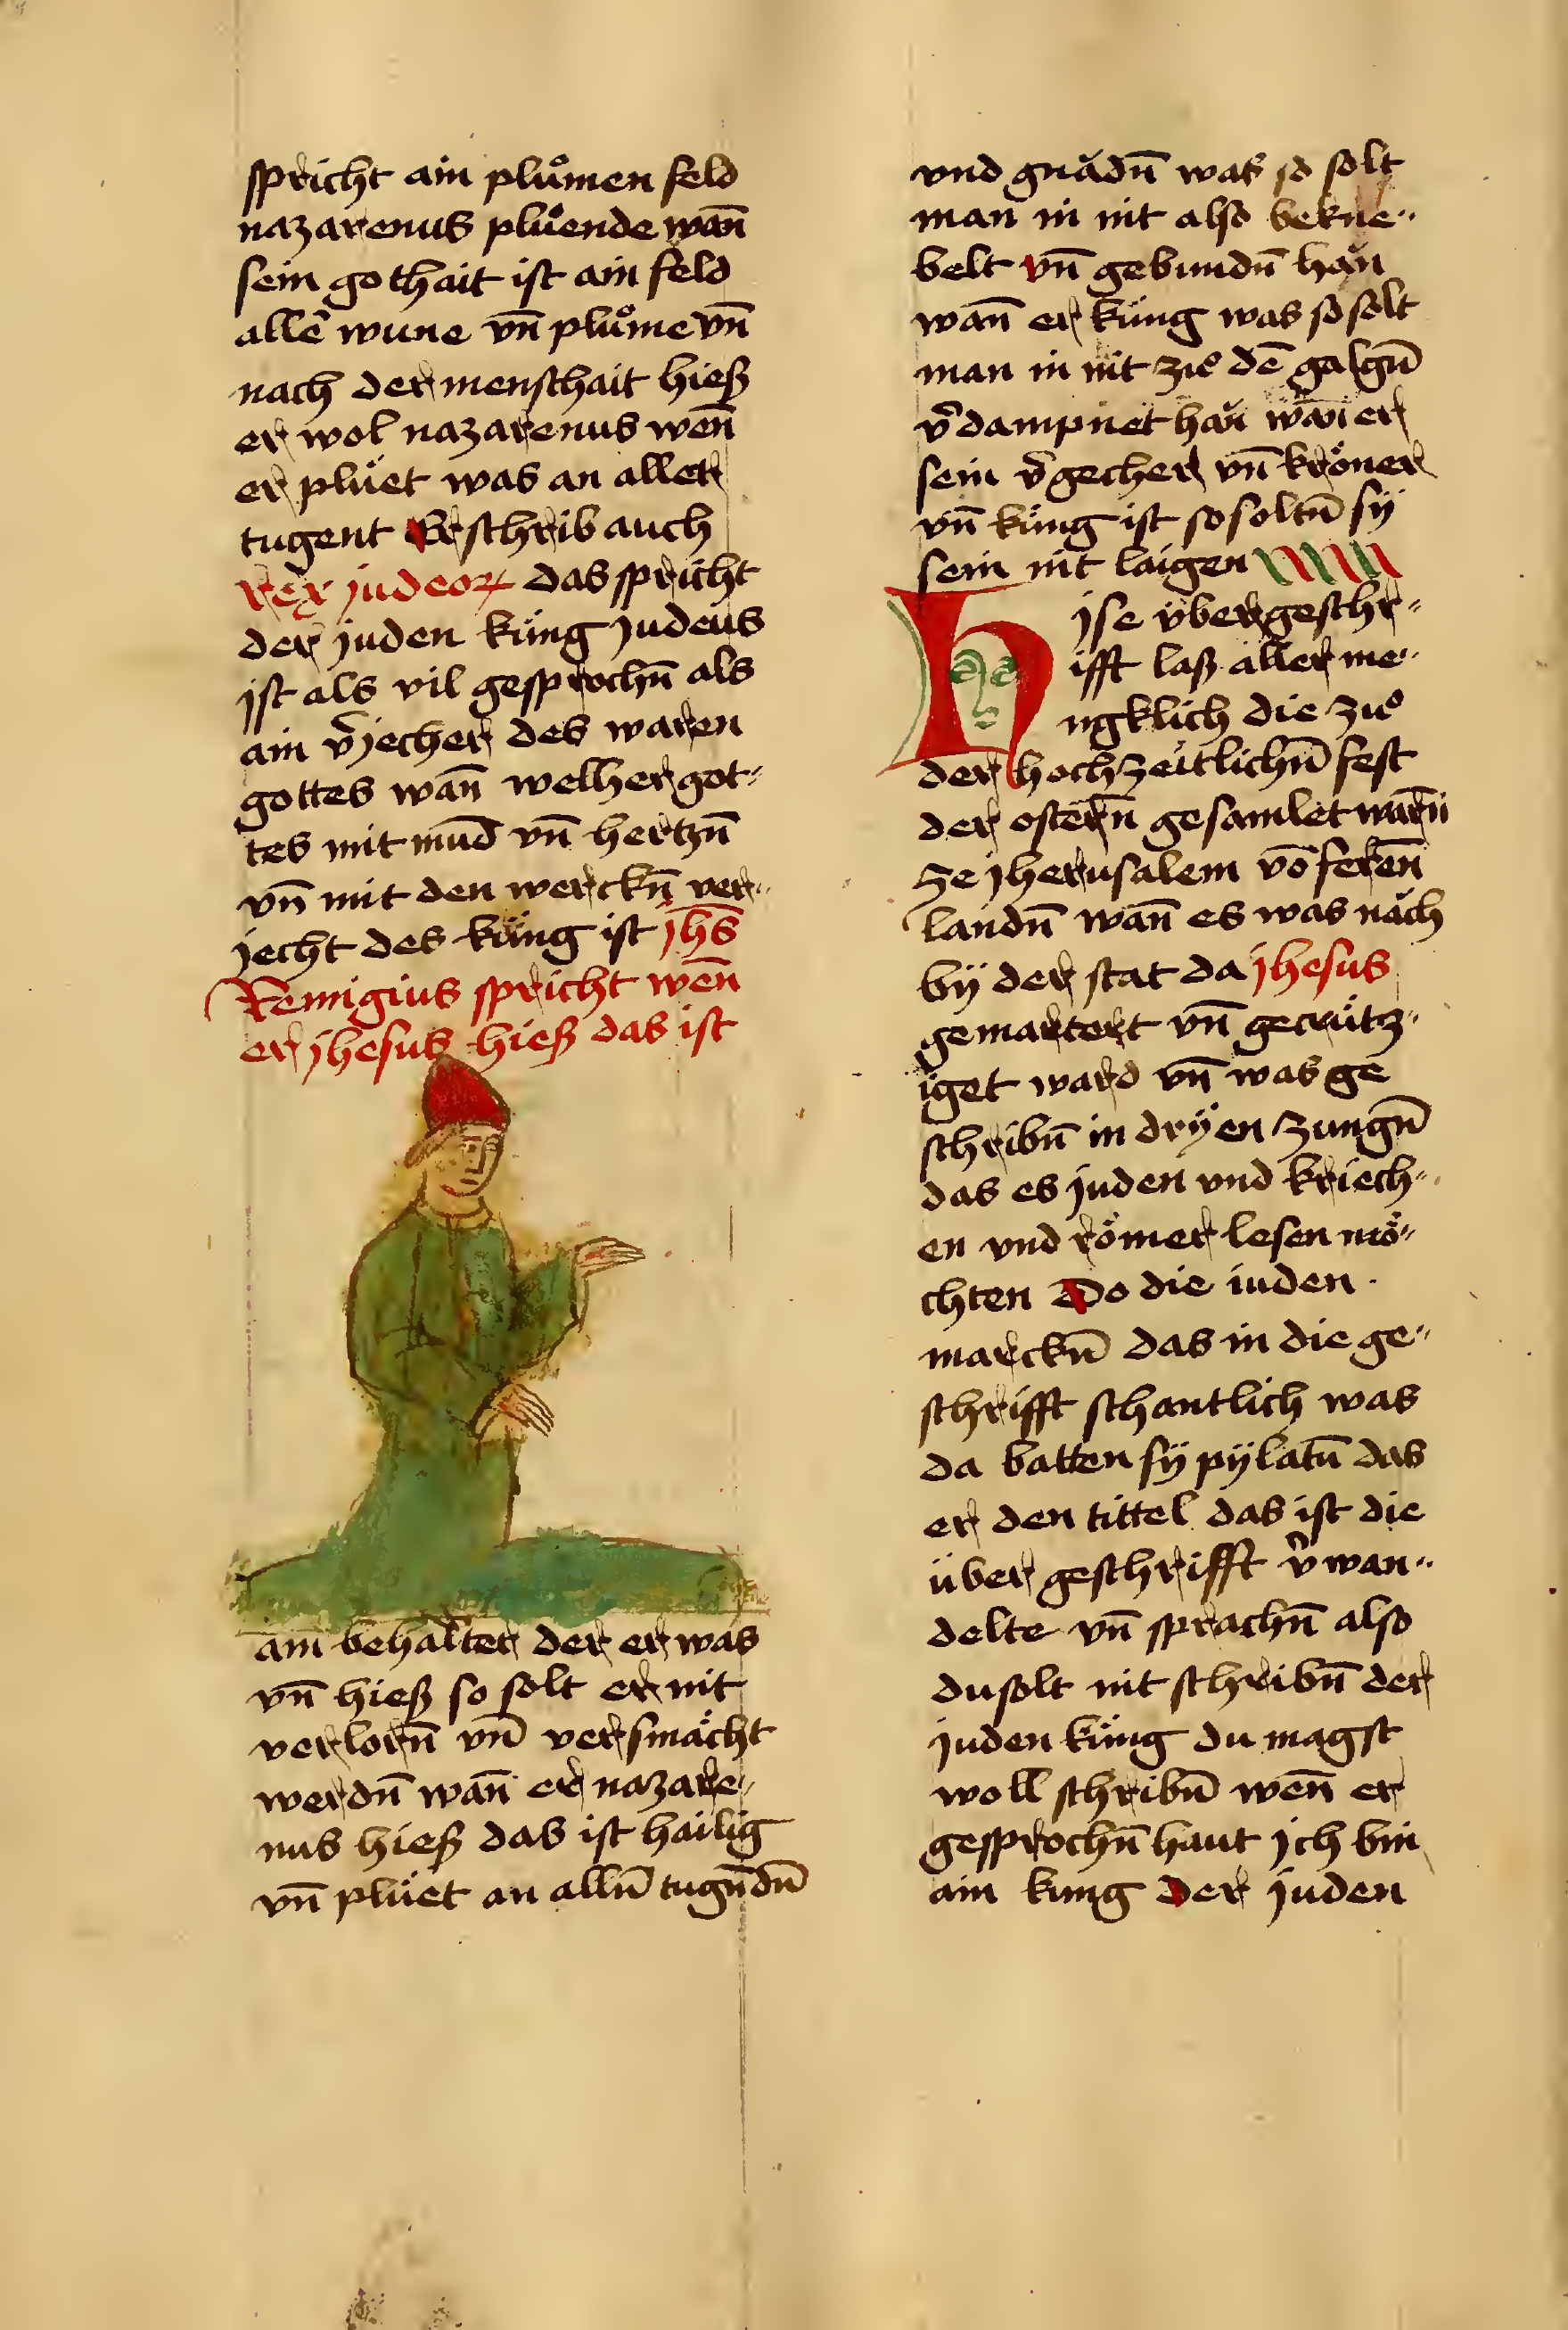 spricht ain pluͦmen feld
nazarenus pluͤende wan̄
sein gothait ist ain feld
allē wune vn̄ pluͦme vn̄
nach der menschait hieß
er wol nazarenus wen̄
er pluͤet was an aller
tugent Er schrib auch
rex judeoꝝ das spricht
der juden kuͤng judeus
ist als vil gesprochn̄ als
ain v̄jecher des waren
gottes wan̄ welher got⸗
tes mit mud̄ vn̄ hertzn̄
vn̄ mit den werckn̄ ver⸗
jecht des kuͤng ist jhs̄
Remigius spricht wen̄
er jhesus hieß das ist
ain behalter der er was
vn̄ hieß so solt er nit
verlorn̄ vn̄ versmächt
werdn̄ wan̄ er nazare⸗
nus hieß das ist hailig
vn̄ pluͤet an alln̄ tugn̄dn̄
vnd gnädn̄ was so solt
man in nit also bekne⸗
belt vn̄ gebundn̄ hän
wan̄ er kuͤng was so solt
man in nit zuͦ dē galgn̄
v̄dampnet hän wan̄ er
sein v̄gecher vn̄ kröner
vn̄ kuͤng ist so soltn̄ sÿ
sein nit laigen
Dise v̈ber geschr⸗
ifft laß aller me⸗
ngklich die zuͦ
der hochzeitlichn̄ fest
der ostern̄ gesamlet warn̄
ze jherusalem vō feren̄
landn̄ wan̄ es was näch
bÿ der stat da jhesus
gemartert vn̄ gecruͤtz⸗
iget ward vn̄ was ge
schribn̄ in drÿen zungn̄
das es juden vnd kriech⸗
en vnd römer lesen mö⸗
chten Do die iuden
marckn̄ das in die ge⸗
schrifft schantlich was
da batten sÿ pÿlatū das
er den tittel das ist die
über geschrifft v̄wan⸗
delte vn̄ sprachn̄ also
du solt nit schribn̄ der
juden kuͤng du magst
woll schribn̄ wen̄ er
gesprochn̄ haut jch bin
ain kung der juden